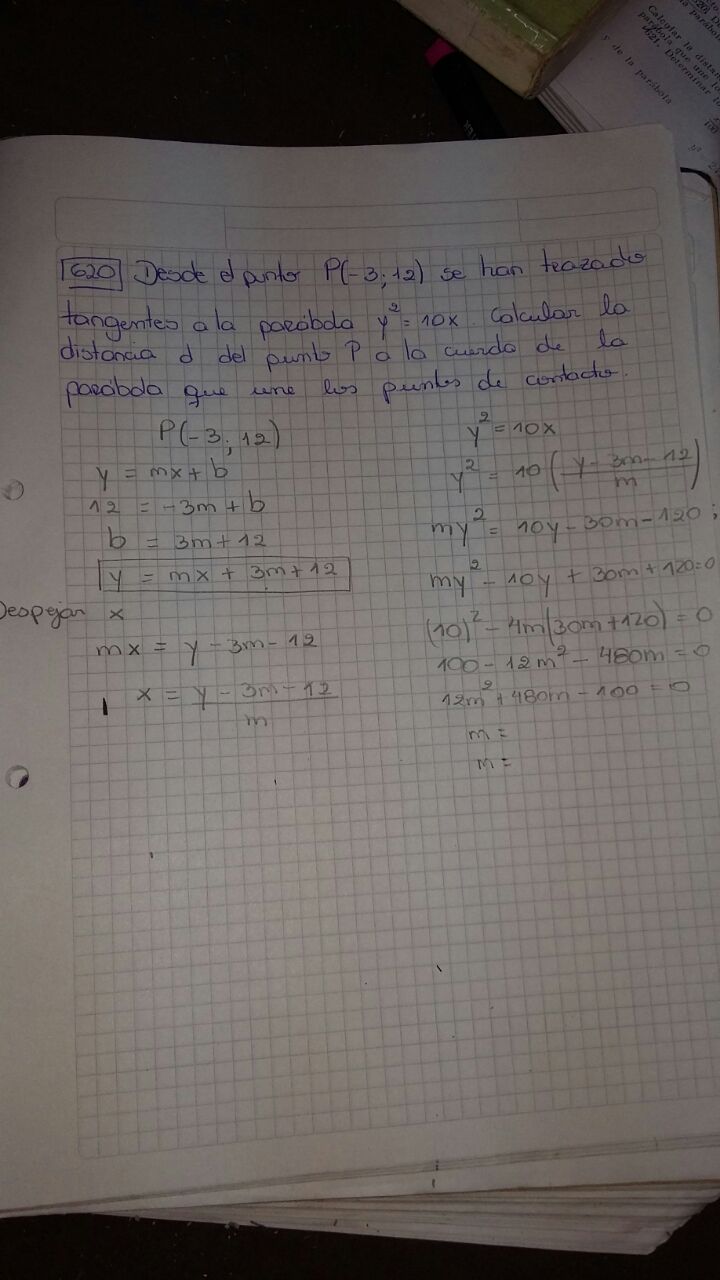 620 Desde el punto P(-3;12) se han trazado
tangentes a la parábola y² = 10x. Calcular la
distancia d del punto P a la cuerda de la
parábola que une los puntos de contacto.
P(-3;12)
y = mx + b
12 = -3m + b
b = 3m + 12
y = mx + 3m + 12
Despejar x
mx = y - 3m - 12
x = y - 3m - 12
m
y² = 10x
y² = 10 (y - 3m - 12 / m)
my² = 10y - 30m - 120;
my² - 10y + 30m + 120 = 0
(10)² - 4m(30m + 120) = 0
100 - 12m² - 480m = 0
12m² + 480m - 100 = 0
m =
m =
Calcular la distan
parábola que une lo
621. Determinar
y de la parábola